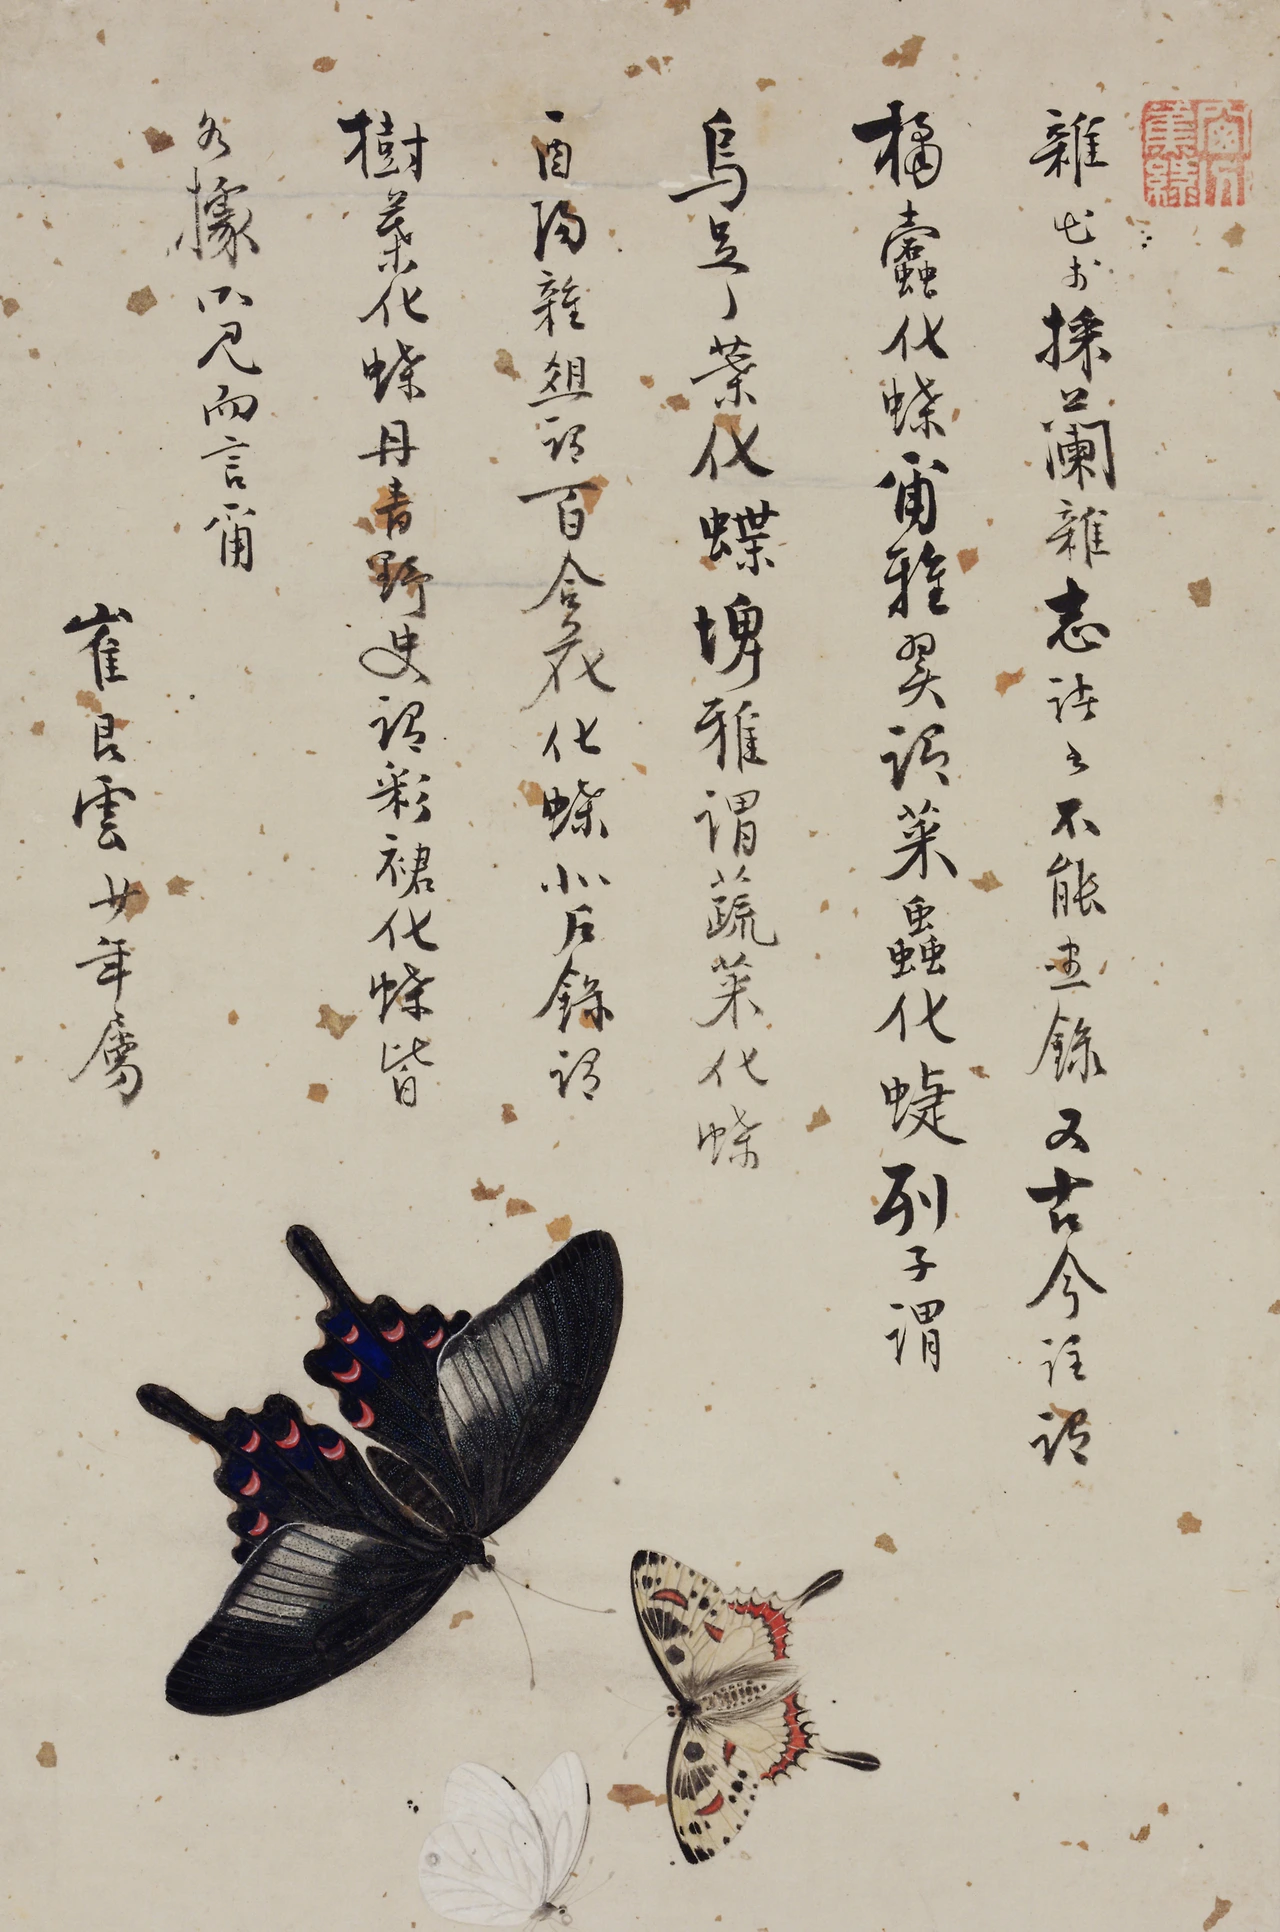 雜出於採蘭雜志諸書不能盡錄又古今註謂
橘蠹化蝶爾雅翼謂菜蟲化蜨列子謂
烏足之葉化蝶埤雅謂蔬菜化蝶
酉陽雜俎謂百合花化蝶北戶錄謂
樹葉化蝶丹青野史謂彩裙化蝶皆
各據所見而言爾
崔艮雲廿年屬